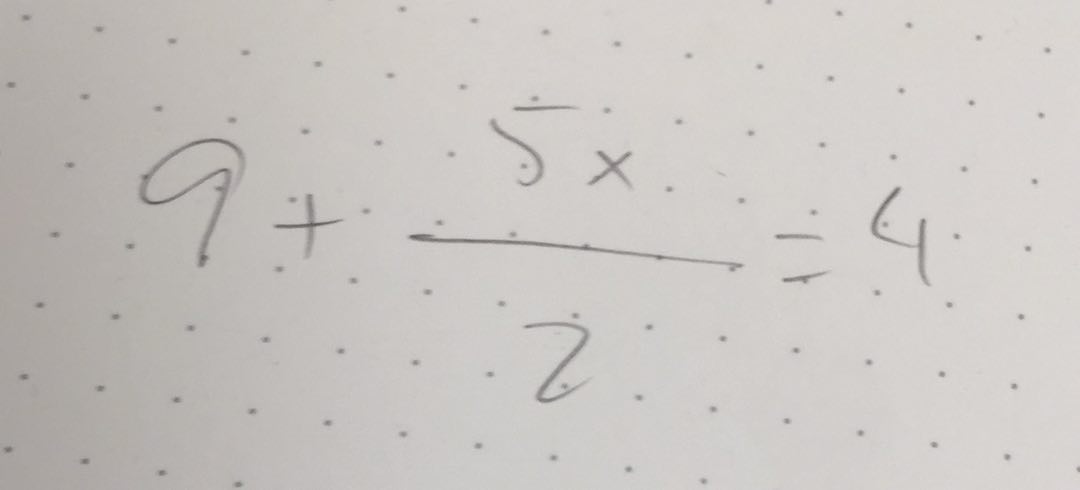 9 + \frac{5x}{2} = 4